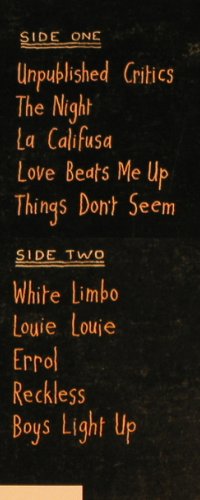 SIDE ONE
Unpublished Critics
The Night
La Califusa
Love Beats Me Up
Things Don't Seem
SIDE TWO
White Limbo
Louie Louie
Errol
Reckless
Boys Light Up